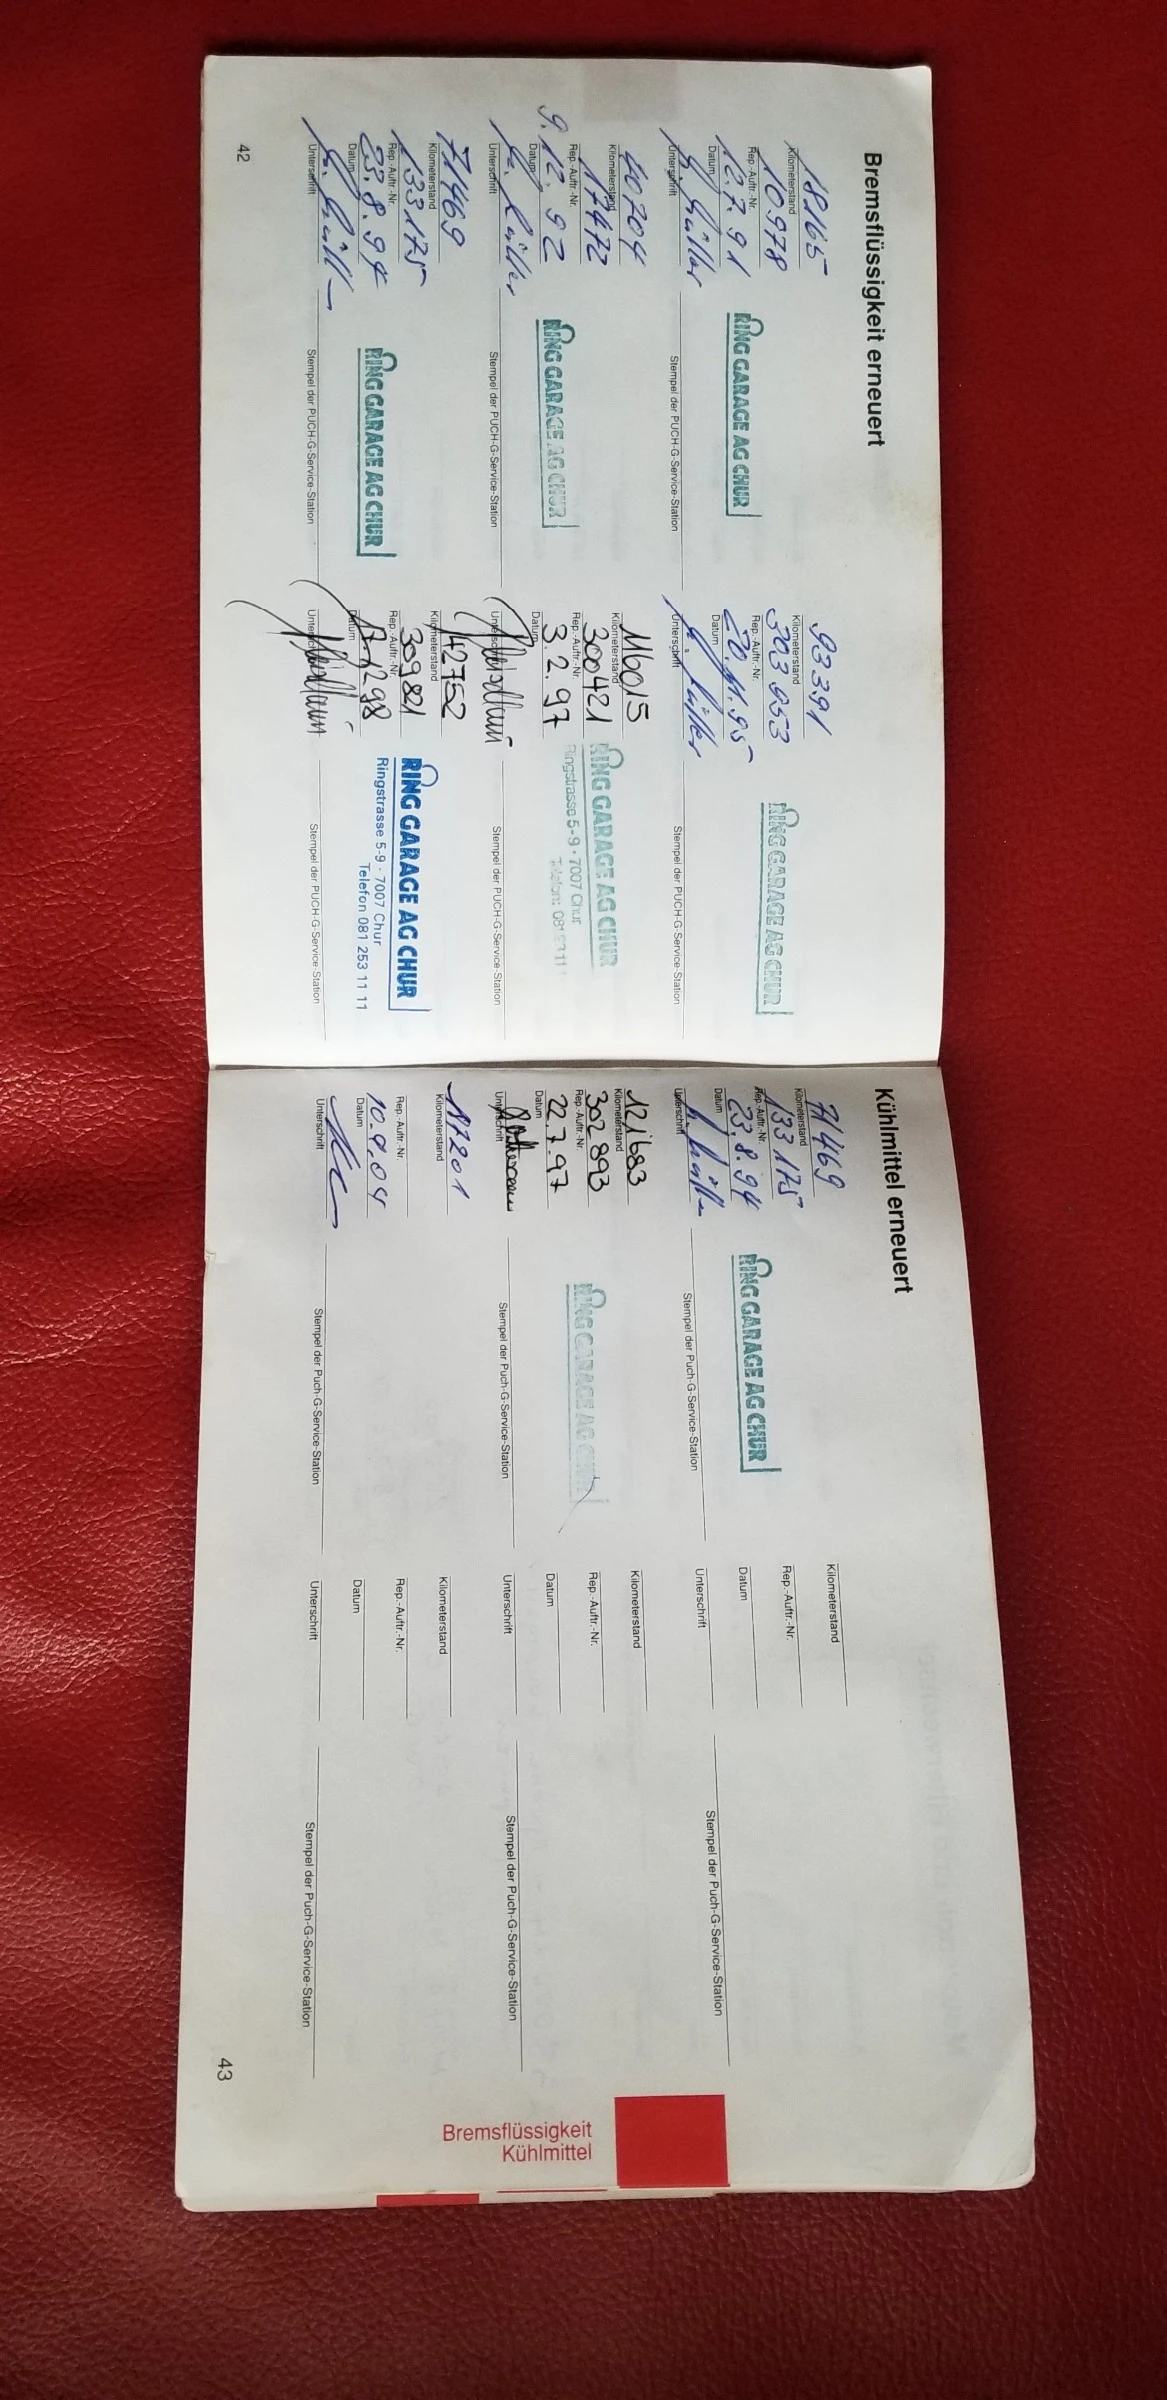 Bremsflüssigkeit erneuert
18165
Kilometerstand
10978
Rep.-Auftr.-Nr.
12.7.91
Datum
Unterschrift
RING GARAGE AG CHUR
Stempel der PUCH-G-Service-Station
40704
Kilometerstand
17472
Rep.-Auftr.-Nr.
9.12.92
Datum
Unterschrift
RING GARAGE AG CHUR
Stempel der PUCH-G-Service-Station
71469
Kilometerstand
133175
Rep.-Auftr.-Nr.
23.8.94
Datum
Unterschrift
RING GARAGE AG CHUR
Stempel der PUCH-G-Service-Station
93391
Kilometerstand
303953
Rep.-Auftr.-Nr.
Datum
Unterschrift
RING GARAGE AG CHUR
Stempel der PUCH-G-Service-Station
116015
Kilometerstand
300421
Rep.-Auftr.-Nr.
3.2.97
Datum
Unterschrift
RING GARAGE AG CHUR
Ringstrasse 5-9 · 7007 Chur
Telefon:
Stempel der PUCH-G-Service-Station
142752
Kilometerstand
309821
Rep.-Auftr.-Nr.
Datum
Unterschrift
RING GARAGE AG CHUR
Ringstrasse 5-9 · 7007 Chur
Telefon 081 253 11 11
Stempel der PUCH-G-Service-Station
42
Kühlmittel erneuert
71469
Kilometerstand
133175
Rep.-Auftr.-Nr.
23.8.94
Datum
Unterschrift
RING GARAGE AG CHUR
Stempel der Puch-G-Service-Station
121683
Kilometerstand
302893
Rep.-Auftr.-Nr.
22.7.97
Datum
Unterschrift
RING GARAGE AG CHUR
Stempel der Puch-G-Service-Station
Kilometerstand
Rep.-Auftr.-Nr.
10.9.04
Datum
Unterschrift
Stempel der Puch-G-Service-Station
Kilometerstand
Rep.-Auftr.-Nr.
Datum
Unterschrift
Stempel der Puch-G-Service-Station
Kilometerstand
Rep.-Auftr.-Nr.
Datum
Unterschrift
Stempel der Puch-G-Service-Station
Kilometerstand
Rep.-Auftr.-Nr.
Datum
Unterschrift
Stempel der Puch-G-Service-Station
43
Bremsflüssigkeit
Kühlmittel